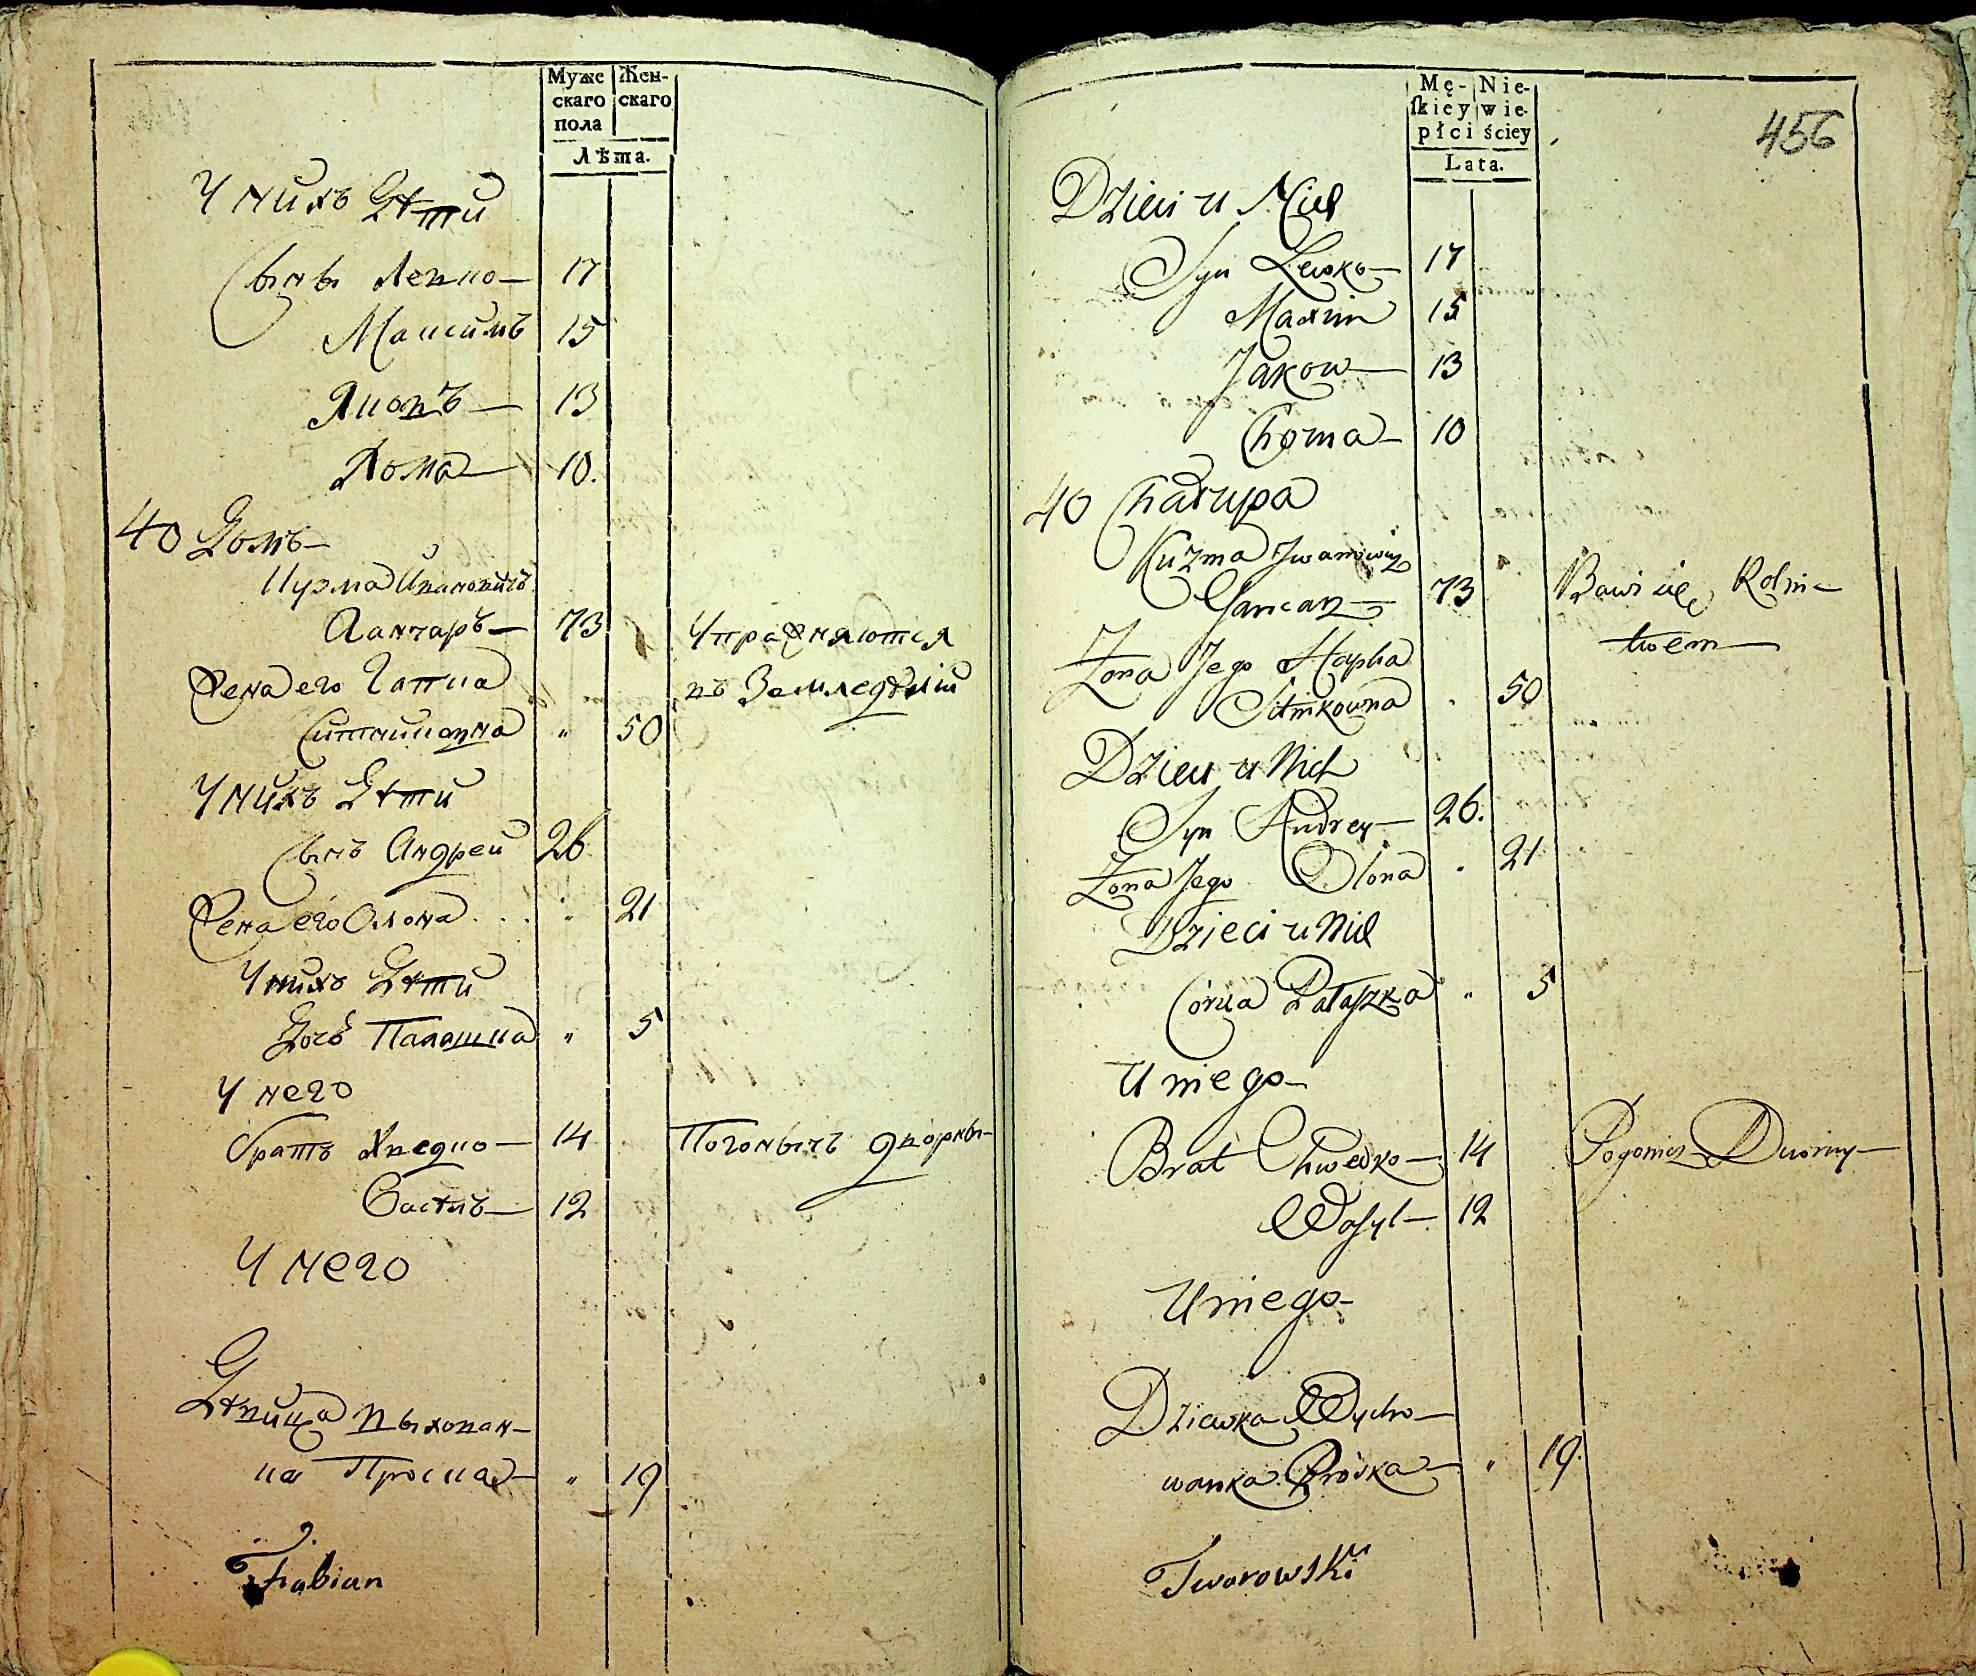 Муже
скаго
пола
Жен-
скаго
Лѣта.
У нихъ Дѣти
Сынъ Левко 17
Максимъ 15
Яковъ 13
Хома 10.
40 Домъ
Кузма Ивановичъ
Ганчаръ 73 Упражняются
Жена его Гапка въ Земледѣліи
Ситниковна " 50
У нихъ Дѣти
Сынъ Андрей 26
Жена его Олона " 21
У нихъ Дѣти
Дочь Палашка " 5
У него
братъ Хведко 14 Погонычъ дворны
Василь 12
У него
Дѣвица выхован-
ка Проска " 19
Fabian
Mę-
skiey
płci
Nie-
wie-
ściey
Lata.
456
Dzieci u Nich
Syn Lewko 17
Maxim 15
Jakow 13
Choma 10
40 Chałupa
Kuzma Iwanowicz
Ganczarz 73 Bawi się Rolnic-
twem
Żona Jego Hapka
Sitnikowna " 50
Dzieci u Nich
Syn Andrey 26.
Żona Jego Olona " 21
Dzieci u Nich
Córka Pałaszka " 5
U niego
Brat Chwedko 14 Pogonicz Dworny
Wasyl 12
U niego
Dziewka Wycho-
wanka Proska " 19.
Tworowski